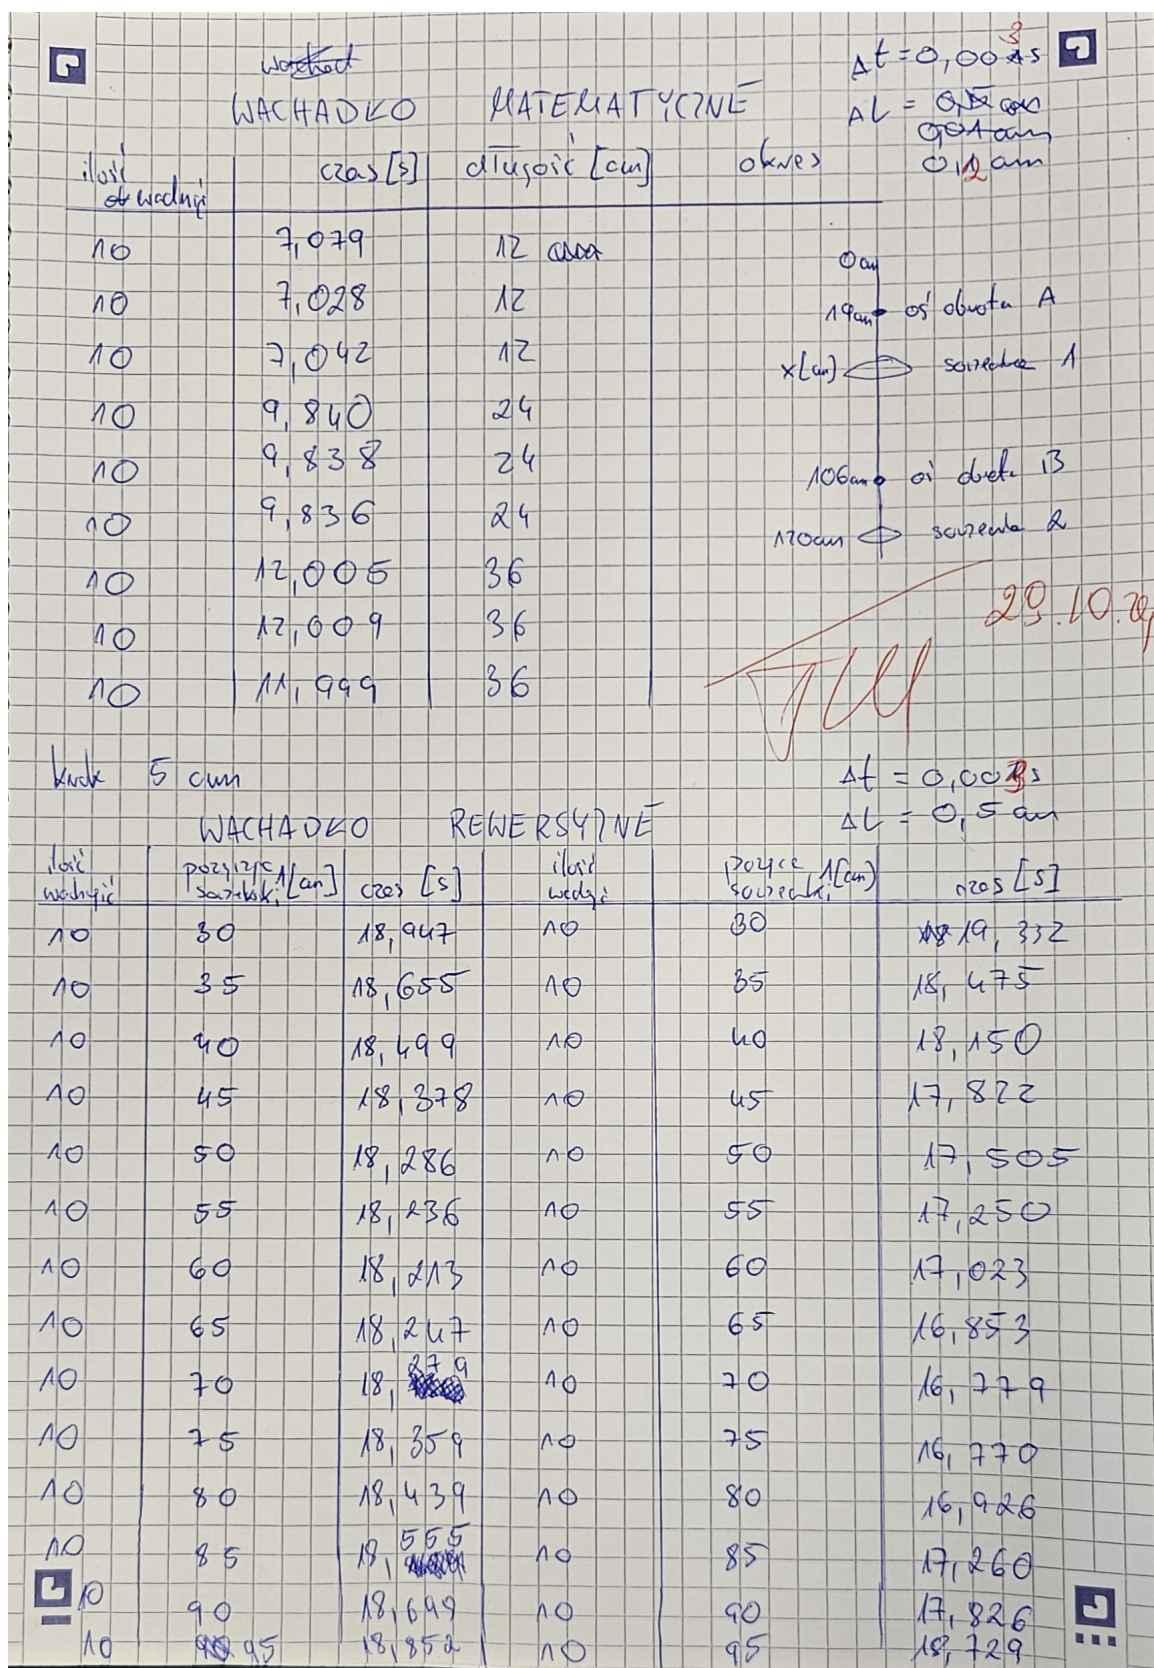 WACHADŁO MATEMATYCZNE
Δt = 0,003s
ΔL =
0,01cm
0,2cm
ilość wachnięć czas [s] długość [cm] okres
10 7,079 12
10 7,028 12
10 7,042 12
10 9,840 24
10 9,838 24
10 9,836 24
10 12,005 36
10 12,009 36
10 11,999 36
0cm
19cm oś obrotu A
x[cm] soczewka 1
106cm oś obrotu B
120cm soczewka 2
29.10.
krok 5 cm
Δt = 0,003s
WACHADŁO REWERSYJNE
ΔL = 0,5 cm
ilość wachnięć pozycja soczewki 1[cm] czas [s] ilość wachnięć pozycja soczewki 1[cm] czas [s]
10 30 18,947 10 30 19,332
10 35 18,655 10 35 18,475
10 40 18,499 10 40 18,150
10 45 18,378 10 45 17,822
10 50 18,286 10 50 17,505
10 55 18,236 10 55 17,250
10 60 18,213 10 60 17,023
10 65 18,247 10 65 16,853
10 70 18,279 10 70 16,779
10 75 18,359 10 75 16,770
10 80 18,439 10 80 16,926
10 85 18,555 10 85 17,260
10 90 18,699 10 90 17,826
10 95 18,852 10 95 18,729